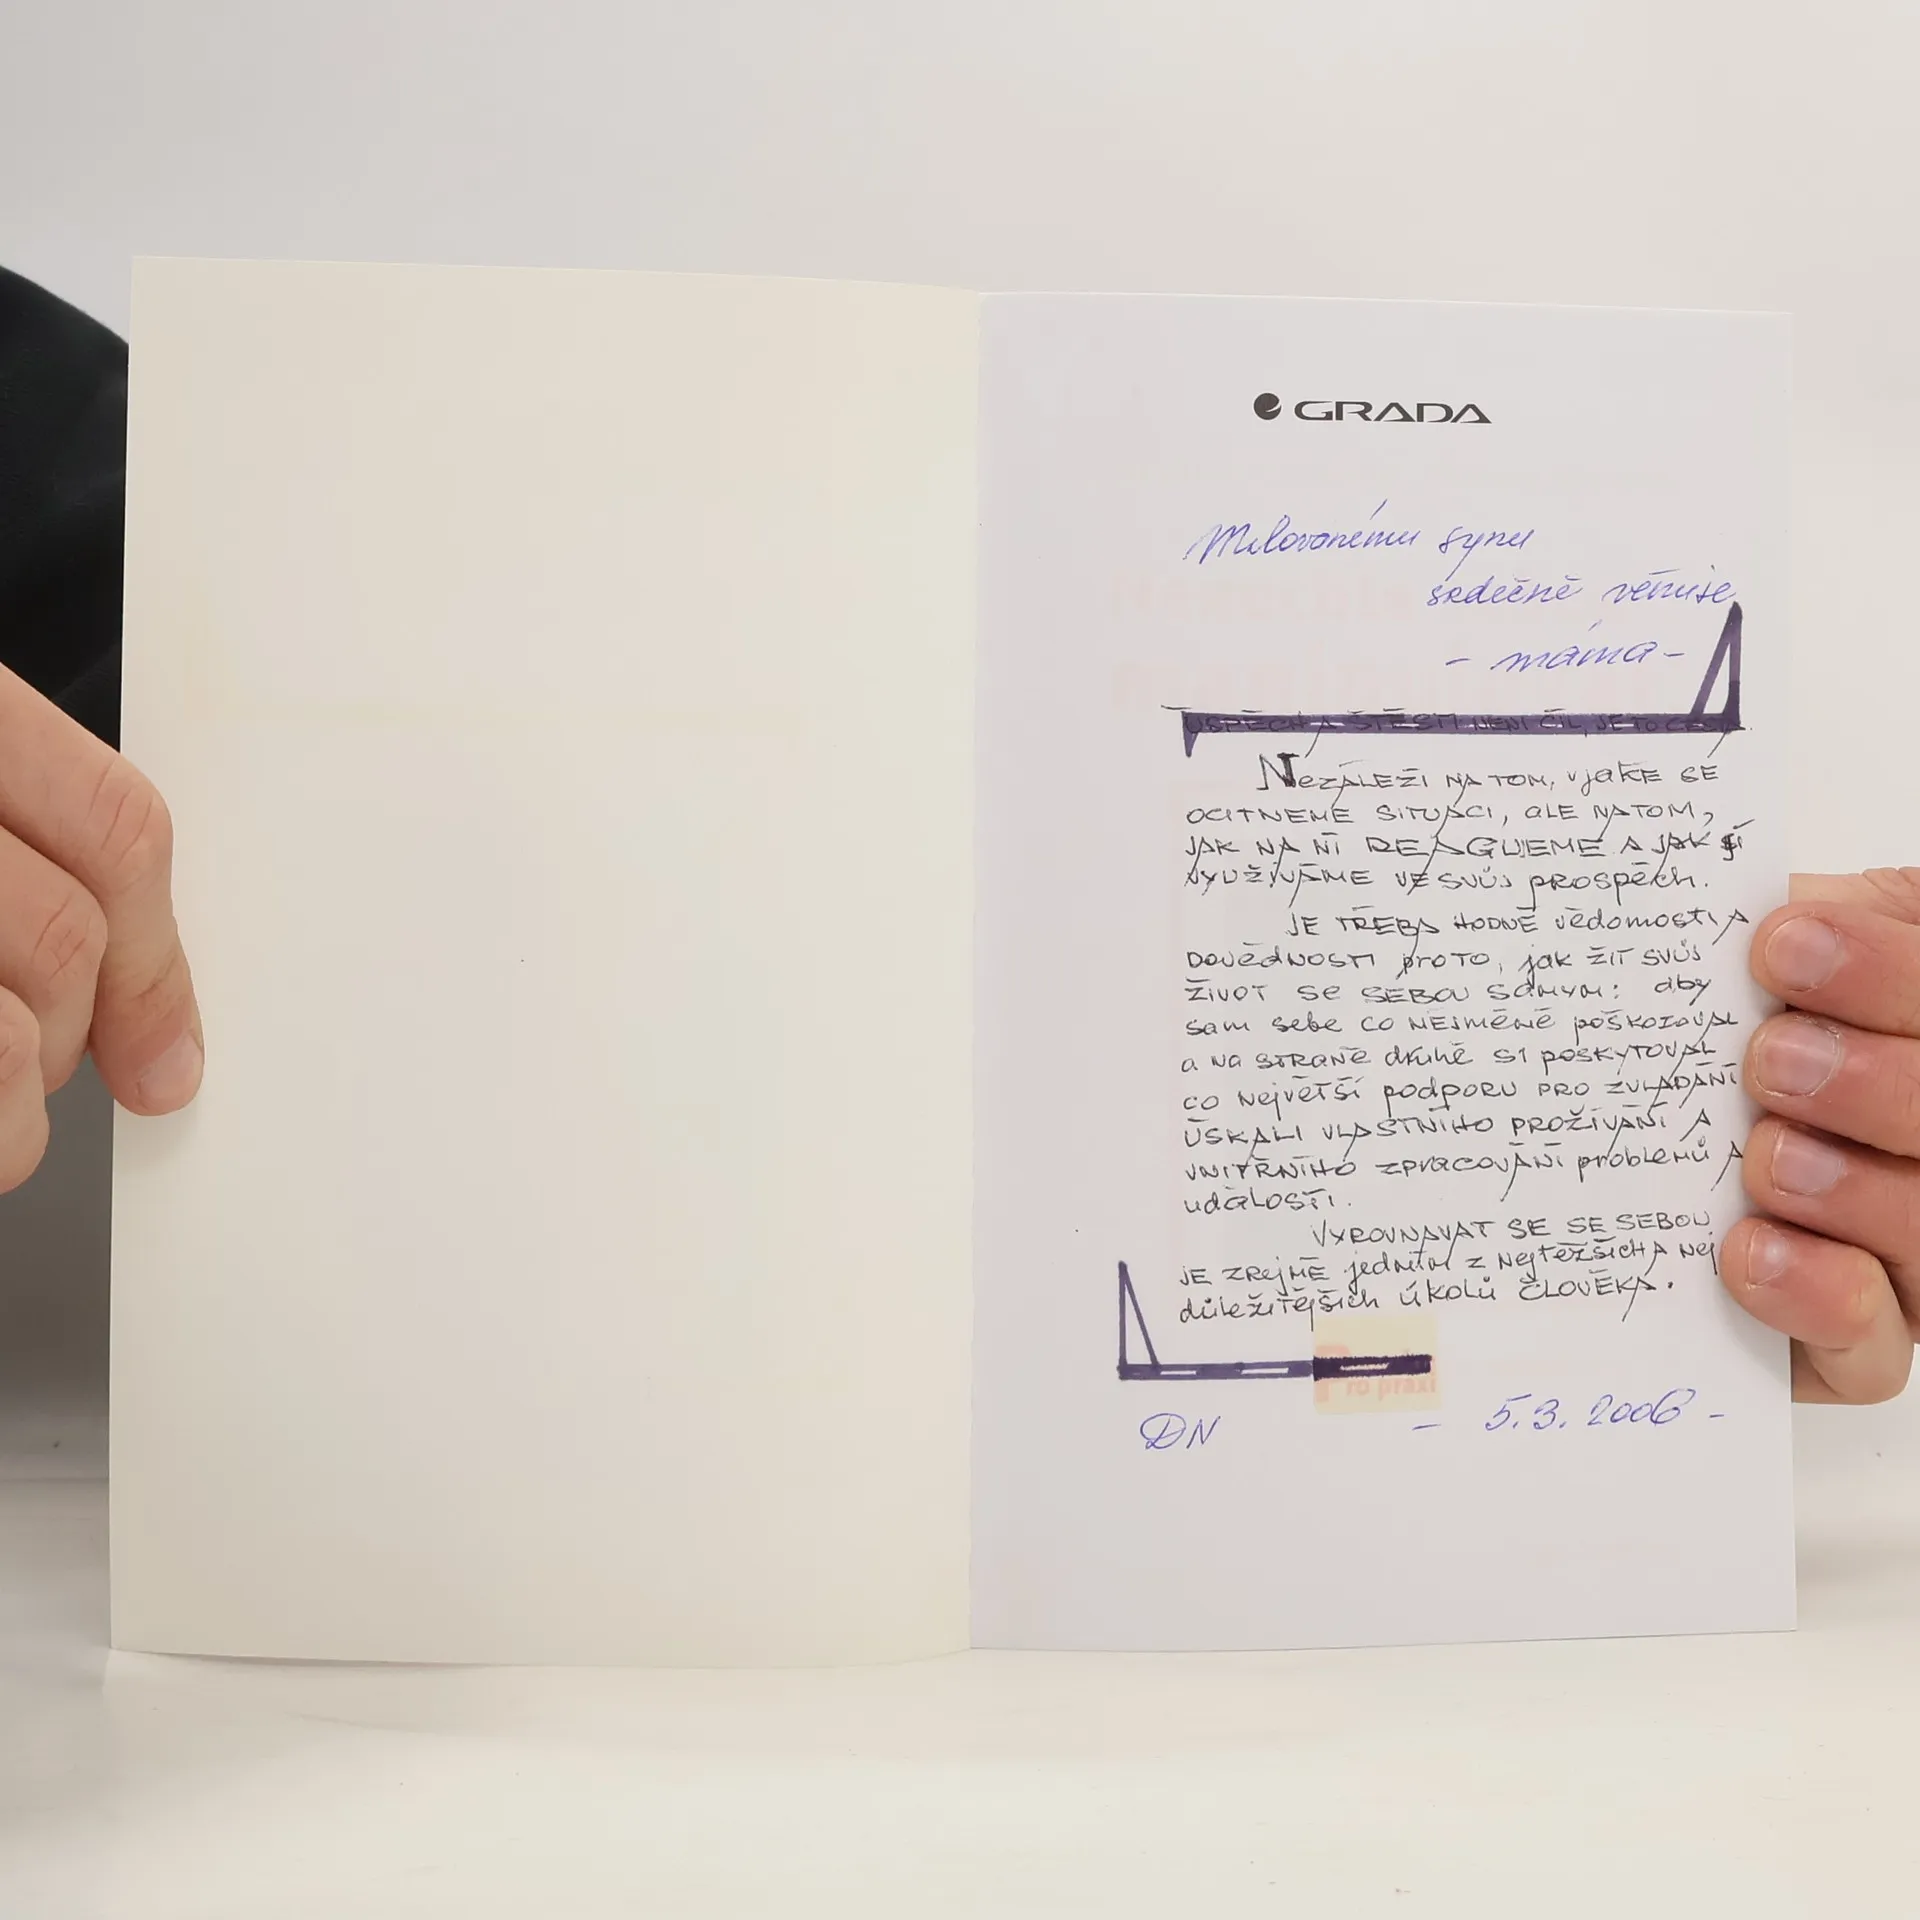 GRADA
Milovanému synu
srdečně věnuje
- máma -
ÚSPĚCH A ŠTĚSTÍ NENÍ CÍL, JE TO CESTA.
NEZÁLEŽÍ NA TOM, V JAKÉ SE
OCITNEME SITUACI, ALE NA TOM,
JAK NA NÍ REAGUJEME A JAK JÍ
VYUŽÍVÁME VE SVŮJ PROSPĚCH.
JE TŘEBA HODNĚ VĚDOMOSTÍ A
DOVĚDNOSTÍ PROTO, JAK ŽÍT SVŮJ
ŽIVOT SE SEBOU SAMÝM: ABY
SAM SEBE CO NEJMÉNĚ POŠKOZOVAL
A NA STRANĚ DRUHÉ SI POSKYTOVAL
CO NEJVĚTŠÍ PODPORU PRO ZVLÁDÁNÍ
ÚSKALÍ VLASTNÍHO PROŽÍVÁNÍ A
VNITŘNÍHO ZPRACOVÁNÍ PROBLEMŮ A
UDÁLOSTÍ.
VYROVNAVAT SE SE SEBOU
JE ZŘEJMĚ JEDNÍM Z NEJTĚŽŠÍCH A NEJ
DŮLEŽITĚJŠÍCH ÚKOLŮ ČLOVĚKA.
Pro praxi
DN - 5.3. 2006 -